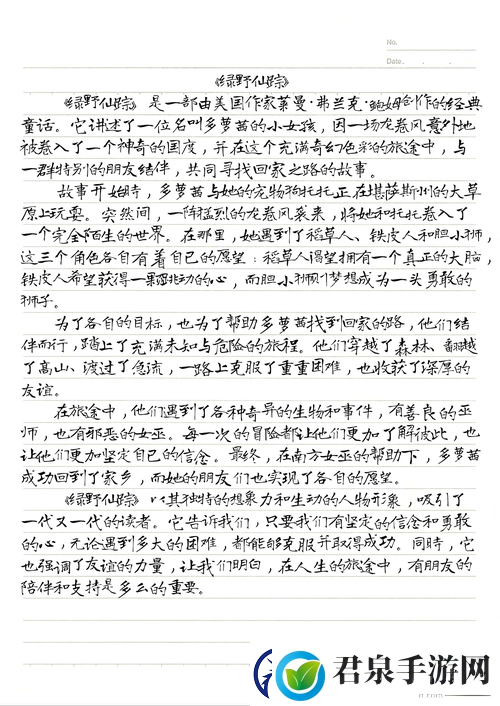 No.
Date.
《绿野仙踪》
《绿野仙踪》是一部由美国作家莱曼·弗兰克·鲍姆创作的经典
童话。它讲述了一位名叫多萝茜的小女孩，因一场龙卷风意外地
被卷入了一个神奇的国度，并在这个充满奇幻色彩的旅途中，与
一群特别的朋友结伴，共同寻找回家之路的故事。
故事开始时，多萝茜与她的宠物狗托托正在堪萨斯州的大草
原上玩耍。突然间，一阵猛烈的龙卷风袭来，将她和托托卷入了
一个完全陌生的世界。在那里，她遇到了稻草人、铁皮人和胆小狮，
这三个角色各自有着自己的愿望：稻草人渴望拥有一个真正的大脑，
铁皮人希望获得一颗跳动的心，而胆小狮则梦想成为一头勇敢的
狮子。
为了各自的目标，也为了帮助多萝茜找到回家的路，他们结
伴而行，踏上了充满未知与危险的旅程。他们穿越了森林、翻越
了高山、渡过了急流，一路上克服了重重困难，也收获了深厚的
友谊。
在旅途中，他们遇到了各种奇异的生物和事件，有善良的巫
师，也有邪恶的女巫。每一次的冒险都让他们更加了解彼此，也
让他们更加坚定自己的信念。最终，在南方女巫的帮助下，多萝茜
成功回到了家乡，而她的朋友们也实现了各自的愿望。
《绿野仙踪》以其独特的想象力和生动的人物形象，吸引了
一代又一代的读者。它告诉我们，只要我们有坚定的信念和勇敢
的心，无论遇到多大的困难，都能够克服并取得成功。同时，它
也强调了友谊的力量，让我们明白，在人生的旅途中，有朋友的
陪伴和支持是多么的重要。
君泉手游网